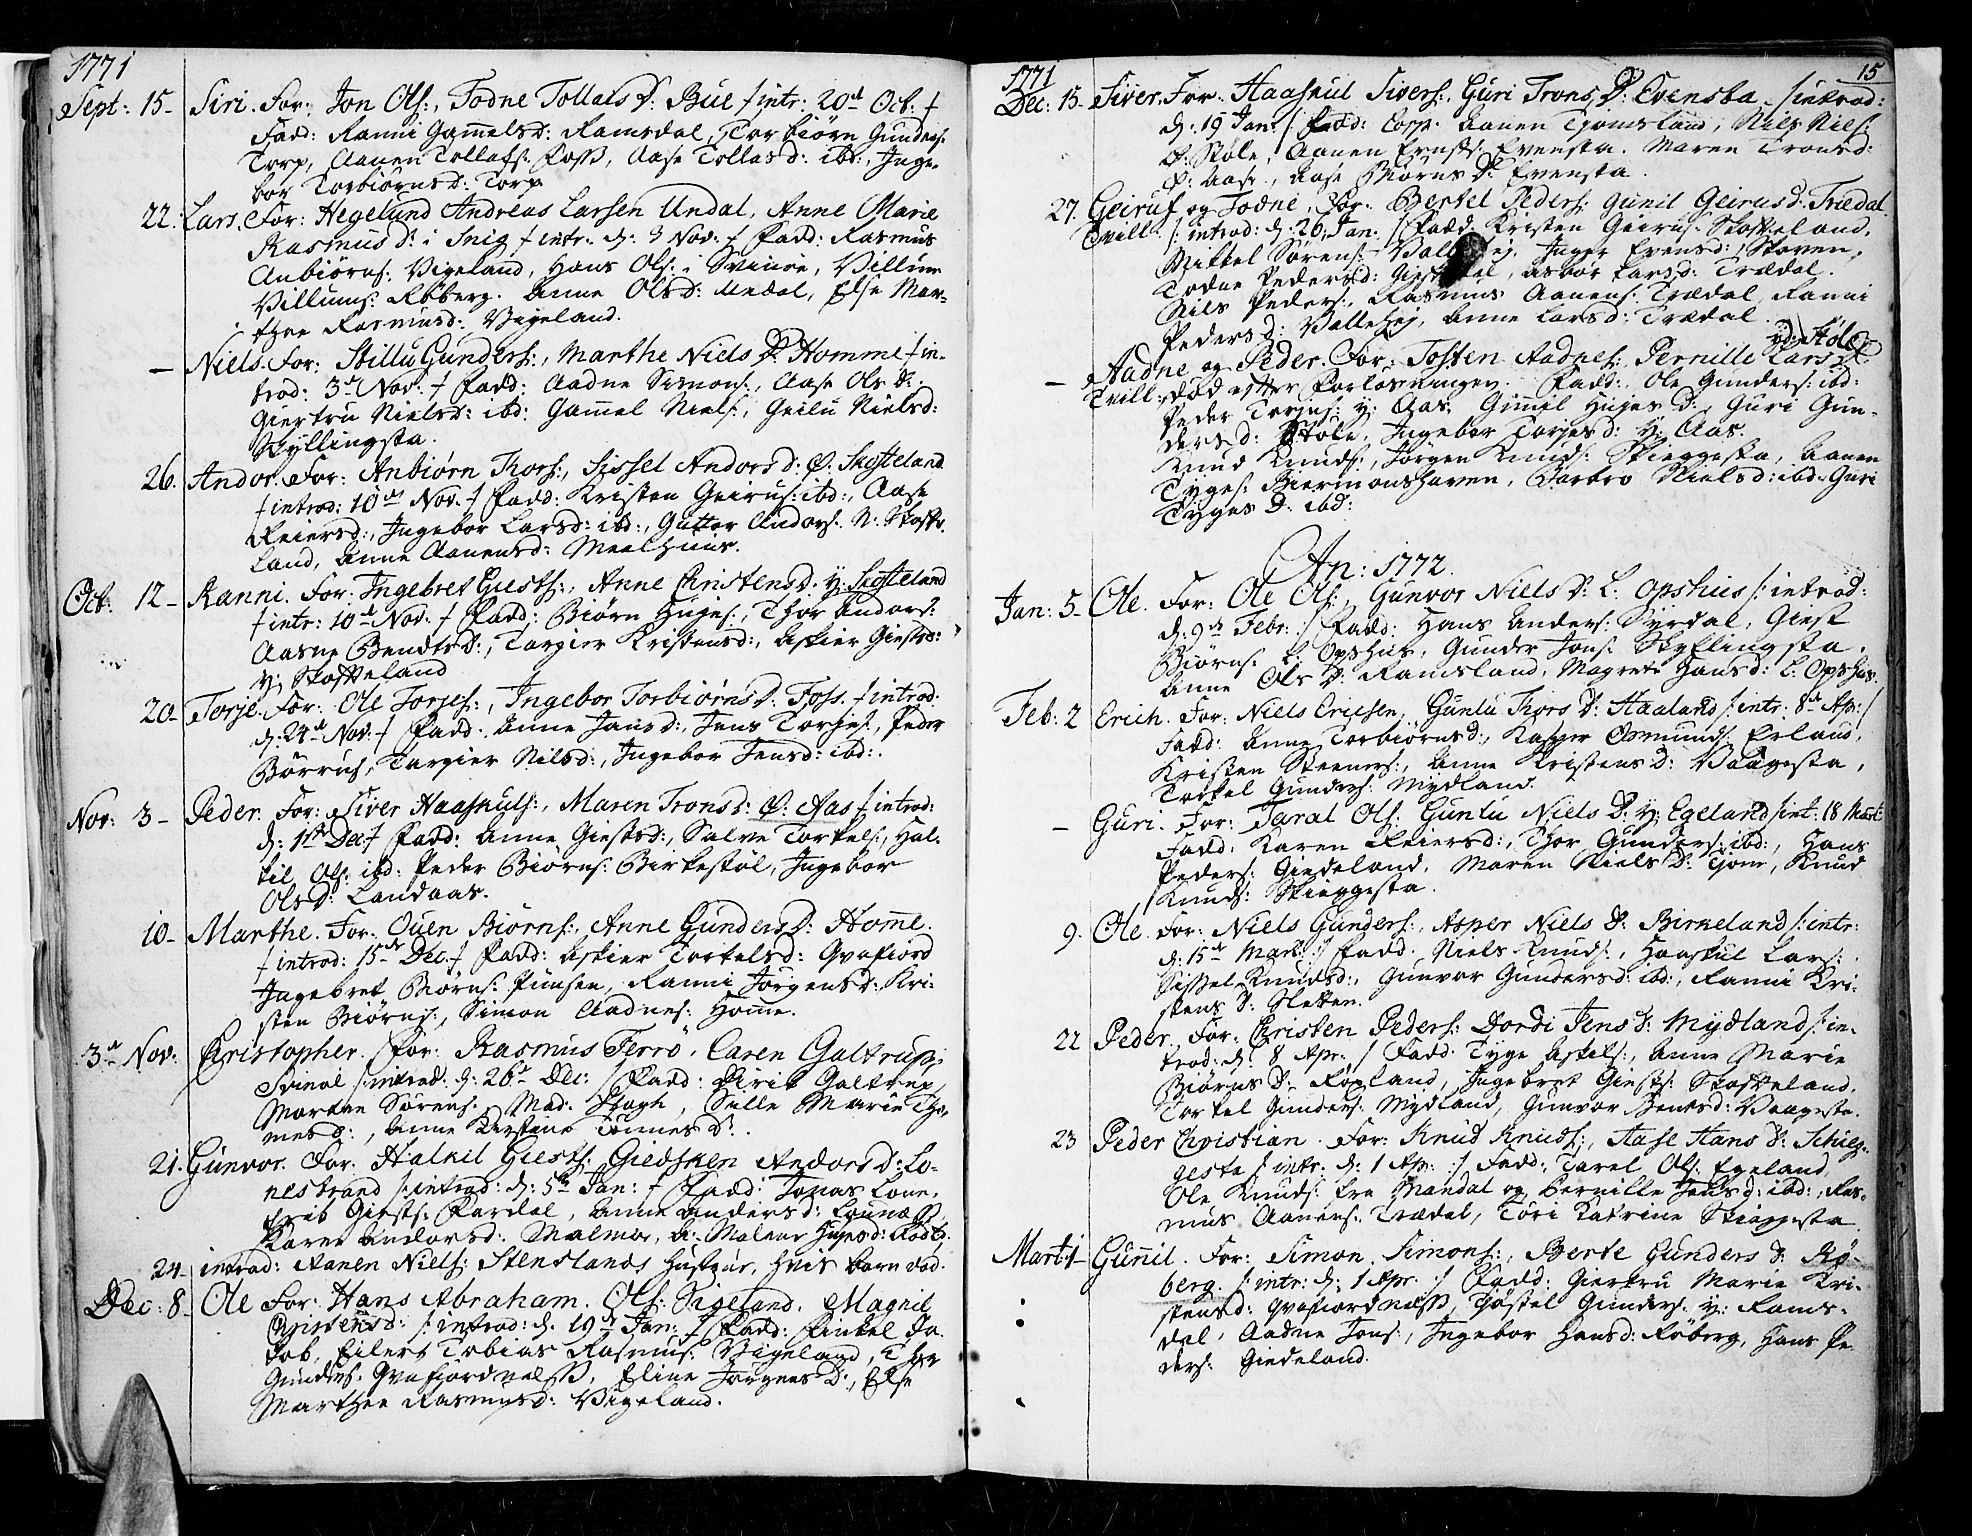 1771
Sept: 15 - Siri. For: Jon Ols:, Todne Tollafs D: Bue /intr: 20d Oct: /
Fadd: Ranni Gamelsd: Ramsdal, Torbiørn Gunders:
Torp, Aanen Tollafs: Foss, Aase Tollafsd: ibd:, Inge-
bor Torbiørnsd: Torp
22. Lars. For: Hegelund Andreas Larsen Undal, Anne Marie
Rasmusd: i Snig / intr: d: 3 Nov: / Fadd: Rasmus
Anbiørns: Vigeland, Hans Ols: i Svinøe, Villum
Villums: Røberg. Anne Olsd: Undal, Else Mar-
thee Rasmusd: Vigeland.
- Niels. For: Stillu Gunders:, Marthe Niels D: Homme / in-
trod: 3d Nov: / Fadd: Aadne Simons:, Aase Ols D:
Giertru Nielsd: ibd: Gamel Niels:, Geilu Nielsd:
Skyllingsta.
26. Andor. For: Anbiørn Thors:, Sissel Andorsd: Ø. Skofteland
/ introd: 10de Nov: / Fadd: Kristen Geirus: ibd:, Aase
Reiersd:, Ingebor Larsd: ibd:, Guttor Andors: N: Skofte-
land, Anne Aanensd: Mealhuus.
Oct: 12 - Ranni. For: Ingebret Giests:, Anne Christensd. Y: Skofteland
/ intr: 10d Nov: / Fadd: Biørn Huges:, Thor Andors:
Aasne Bendtsd:, Targier Kristensd:, Askier Giestsd:
Y: Skofteland
20 - Torje. For: Ole Torjes:, Ingebor Torbiørnsd: Foss. / introd.
d: 24d Nov: / Fadd: Anne Jansd:, Jens Torjes:, Peder
Børrus:, Targier Nilsd:, Ingebor Jensd: ibd:
Nov: 3 - Peder. For: Siver Haaskuls:, Maren Tronsd: Ø. Aas / introd:
d: 1ste Dec / Fadd: Anne Giestsd:, Salve Torkels:, Hal-
kil Ols: ibd: Peder Biørns: Birkestøl, Ingebor
Olsd: Landaas.
10 - Marthe. For: Ouen Biørns:, Anne Gundersd: Home.
/ introd: 15de Dec: / Fadd: Askier Torkelsd: Qvafiord
Ingebret Biørns: , Ranni Jørgensd: Kri-
sten Biørns:, Simon Aadnes: Home.
3d Nov: Christopher. For: Rasmus Ferrø, Caren Galtrup,
Svinøe / introd: d: 26d Dec: / Fadd: Girit Galtrup,
Morten Sørens:, Mad: Hogh, Sille Marie Tho-
mesd:, Anne Kirstine Tønnes D:.
21. Gunvor. For. Halkil Giests: Giedsken Andorsd: Lo-
nestrand / introd: d: 5te Jan: / Fadd: Jonas Lone,
Erik Giests: Fardal, Anne Andersd: Lounæss,
Karen Andorsd: Malmø, A: Malene Hugesd:
24 - introd: Aanen Niels: Stenslands Hustrue, hvis barn død.
Dec: 8 - Ole For: Hans Abraham Ols: Sigeland. Magnil
Christensd: / introd: d: 19d Jan: / Fadd: Finkel Ja-
cob Eilers Tobias Rasmus: Vigeland, Thor
Gunders: Qvafiordnæss, Eline Jørgens D:, Else
Marthea Rasmusd: Vigeland.
1771
15
Dec: 15 - Siver. For: Haaskul Sivers:, Guri Trons D: Evensta / introd:
d: 19 Jan: / Fadd: Corp: Aanen Tjomsland, Niels Niels:
Ø: Støle, Aanen Ernsts: Evensta. Maren Tronsd:
Ø: Aase, Aase Biørns D: Evensta.
27. Geiruf og Todne, For: Bertel Peders: Gunil Geirusd: Trædal
Tvill: /: introd: d: 26. Jan: / Fadd: Kristen Geirus: Skofteland,
Mikkel Sørens: Inger Evensd: Skoven,
Todne Pedersd: Asbor Larsd: Trædal.
Nils Peders:, Rasmus Aanens: Trædal, Ranni
Pedersd: Vallehej, Anne Larsd: Trædal.
Y: Støle
- Aadne og Peder. For: Tosten Aadnes: Pernille Lars D:
Tvill: død efter Forløsningen. Fadd:, Ole Gunders: ibd:
Peder Torjus: Y: Aas. Gunil Huges D:, Guri Gun-
dersd: Støle, Ingebor Torjesd: Y: Aas.
Knud Knuds:, Jørgen Knuds: Skieggesta, Aanen
Tyges: Biermanshaven, Barbro Nielsd: ibd: Guri
Tyges D: ibd:
An: 1772
Jan: 5 - Ole. For: Ole Ols:, Gunvor Niels D: L. Opshus /: introd:
d: 9d Febr: :/ Fadd: Hans Anders: Syrdal, Giest
Biørns: L: Opshus, Gunder Jons: Skyllingsta,
Anne Ols D: Ramsland, Magrete Hansd: L: Opshus.
Feb: 2 Erich. For: Niels Ericsen, Guntu Thors D: Haaland /: intr: 8d Apr: /
Fadd: Anne Torbiørnsd:, Kasper Osmunds: Erland,
Kristen Steeners:, Anne Kristens D: Vaagesta,
Torkel Gunders: Mydland.
- Guri. For: Taral Ols: Guntu Niels D: Y: Egeland / int: 18 Mart:
Fadd. Karen Reiersd:, Thor Gunders: ibd:, Hans
Peders: Giedeland, Maren Niels D: Tjom, Knud
Knuds: Skieggesta.
9. Ole For: Niels Gunders:, Asper Niels D: Birkeland /: intr:
d: 15de Mart: :/ Fadd: Niels Knuds:, Haaskul Lars:
Sissel Knudsd:, Gunvor Gundersd: ibd:, Ranni Kri-
stens D: Sletten.
22 Peder. For: Christen Peders: Dordi Jens D: Mydland /: in-
trod: d: 8 Apr: :/ Fadd: Tyge Askels:, Anne Marie
Biørns D: Føgland, Ingebret Giests: Skofteland.
Torkel Gunders: Mydland, Gunvor Bentsd: Vaagesta.
23 Peder Christian. For: Knud Knuds:, Aase Hans D: Schieg-
gesta / intr: d: 1 Apr: :/ Fadd: Tarel Ols: Egeland,
Ole Knuds: fra Mandal og Pernille Jensd: ibd:, Ras-
mus Aanens: Trædal, Tori Katrine Skieggesta.
Mart: 1 - Gunil. For: Simon Simons:, Berte Gunders D: Rø-
berg. /: intr: d: 1 Apr: :/ Fadd: Giertru Marie Kri-
stensd: Qvafiordnæss, Tostel Gunders: Y: Rams-
dal, Aadne Jons:, Ingebor Hansd: Røberg, Hans Pe-
ders: Giedeland.